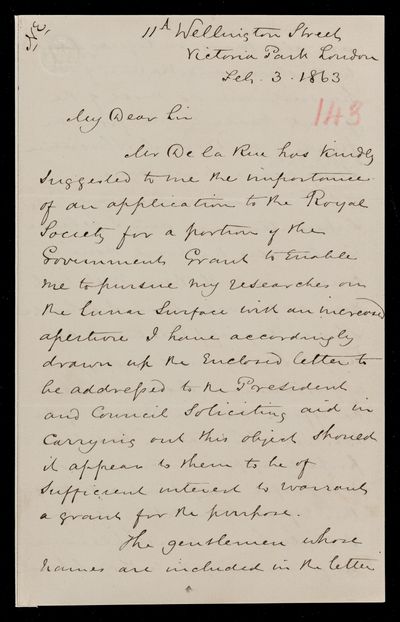 N.E.
11A Wellington Street
Victoria Park London
Feb. 3. 1863
143
My Dear Sir
Mr De la Rue has kindly
suggested to me the importance
of an application to the Royal
Society for a portion of the
Government Grant to enable
me to pursue my researches on
the Lunar Surface with an increased
aperture I have accordingly
drawn up the enclosed letter to
be addressed to the President
and Council Soliciting aid in
carrying out this object should
it appear to them to be of
sufficient interest to warrant
a grant for the purpose.
The gentlemen whose
names are included in the letter